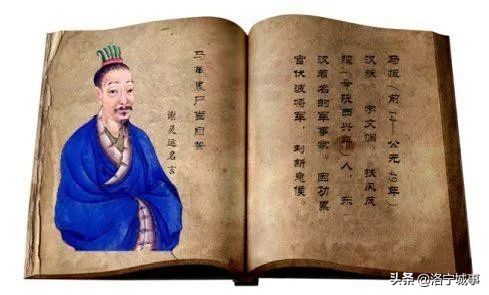 马革裹尸當自誓
谢灵运名言
马援（前14——公元49年）
汉族 字文渊。扶风茂
陵（今陕西兴平）人，东
汉着名的军事家。因功累
官伏波将军，封新息侯。
头条 @洛宁城事